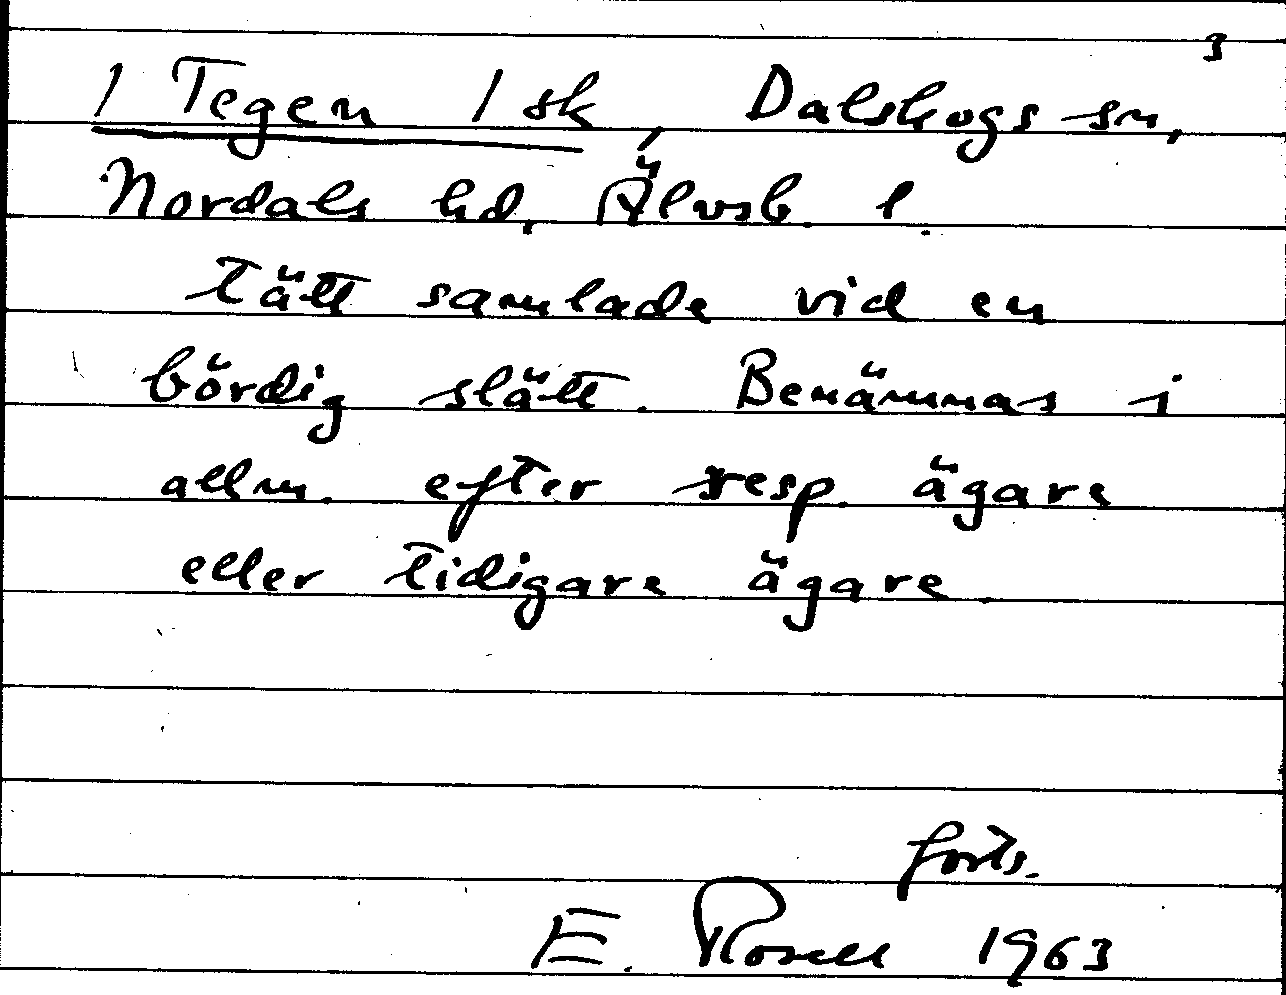 3
/ Tegen / sk, Dalskogs sn,
Nordals hd, Älvsb. l.
Tätt samlade vid en
bördig slätt. Benämnas i
allm. efter resp. ägare
eller tidigare ägare.
forts.
E. Rosell 1963